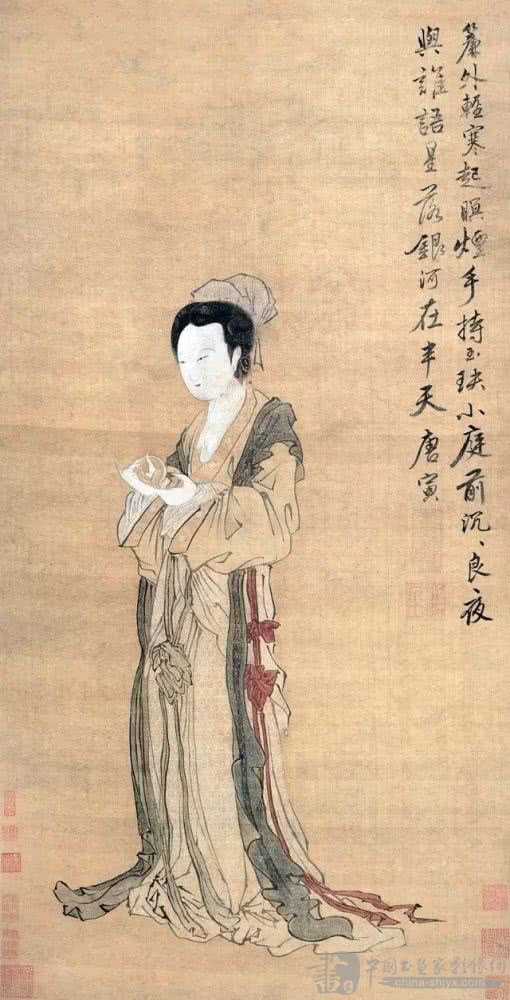 簾外輕寒起暝煙手持玉玦小庭前沉、良夜
與誰語星落銀河在半天 唐寅
中国书画家影像網
china-shjyx.com